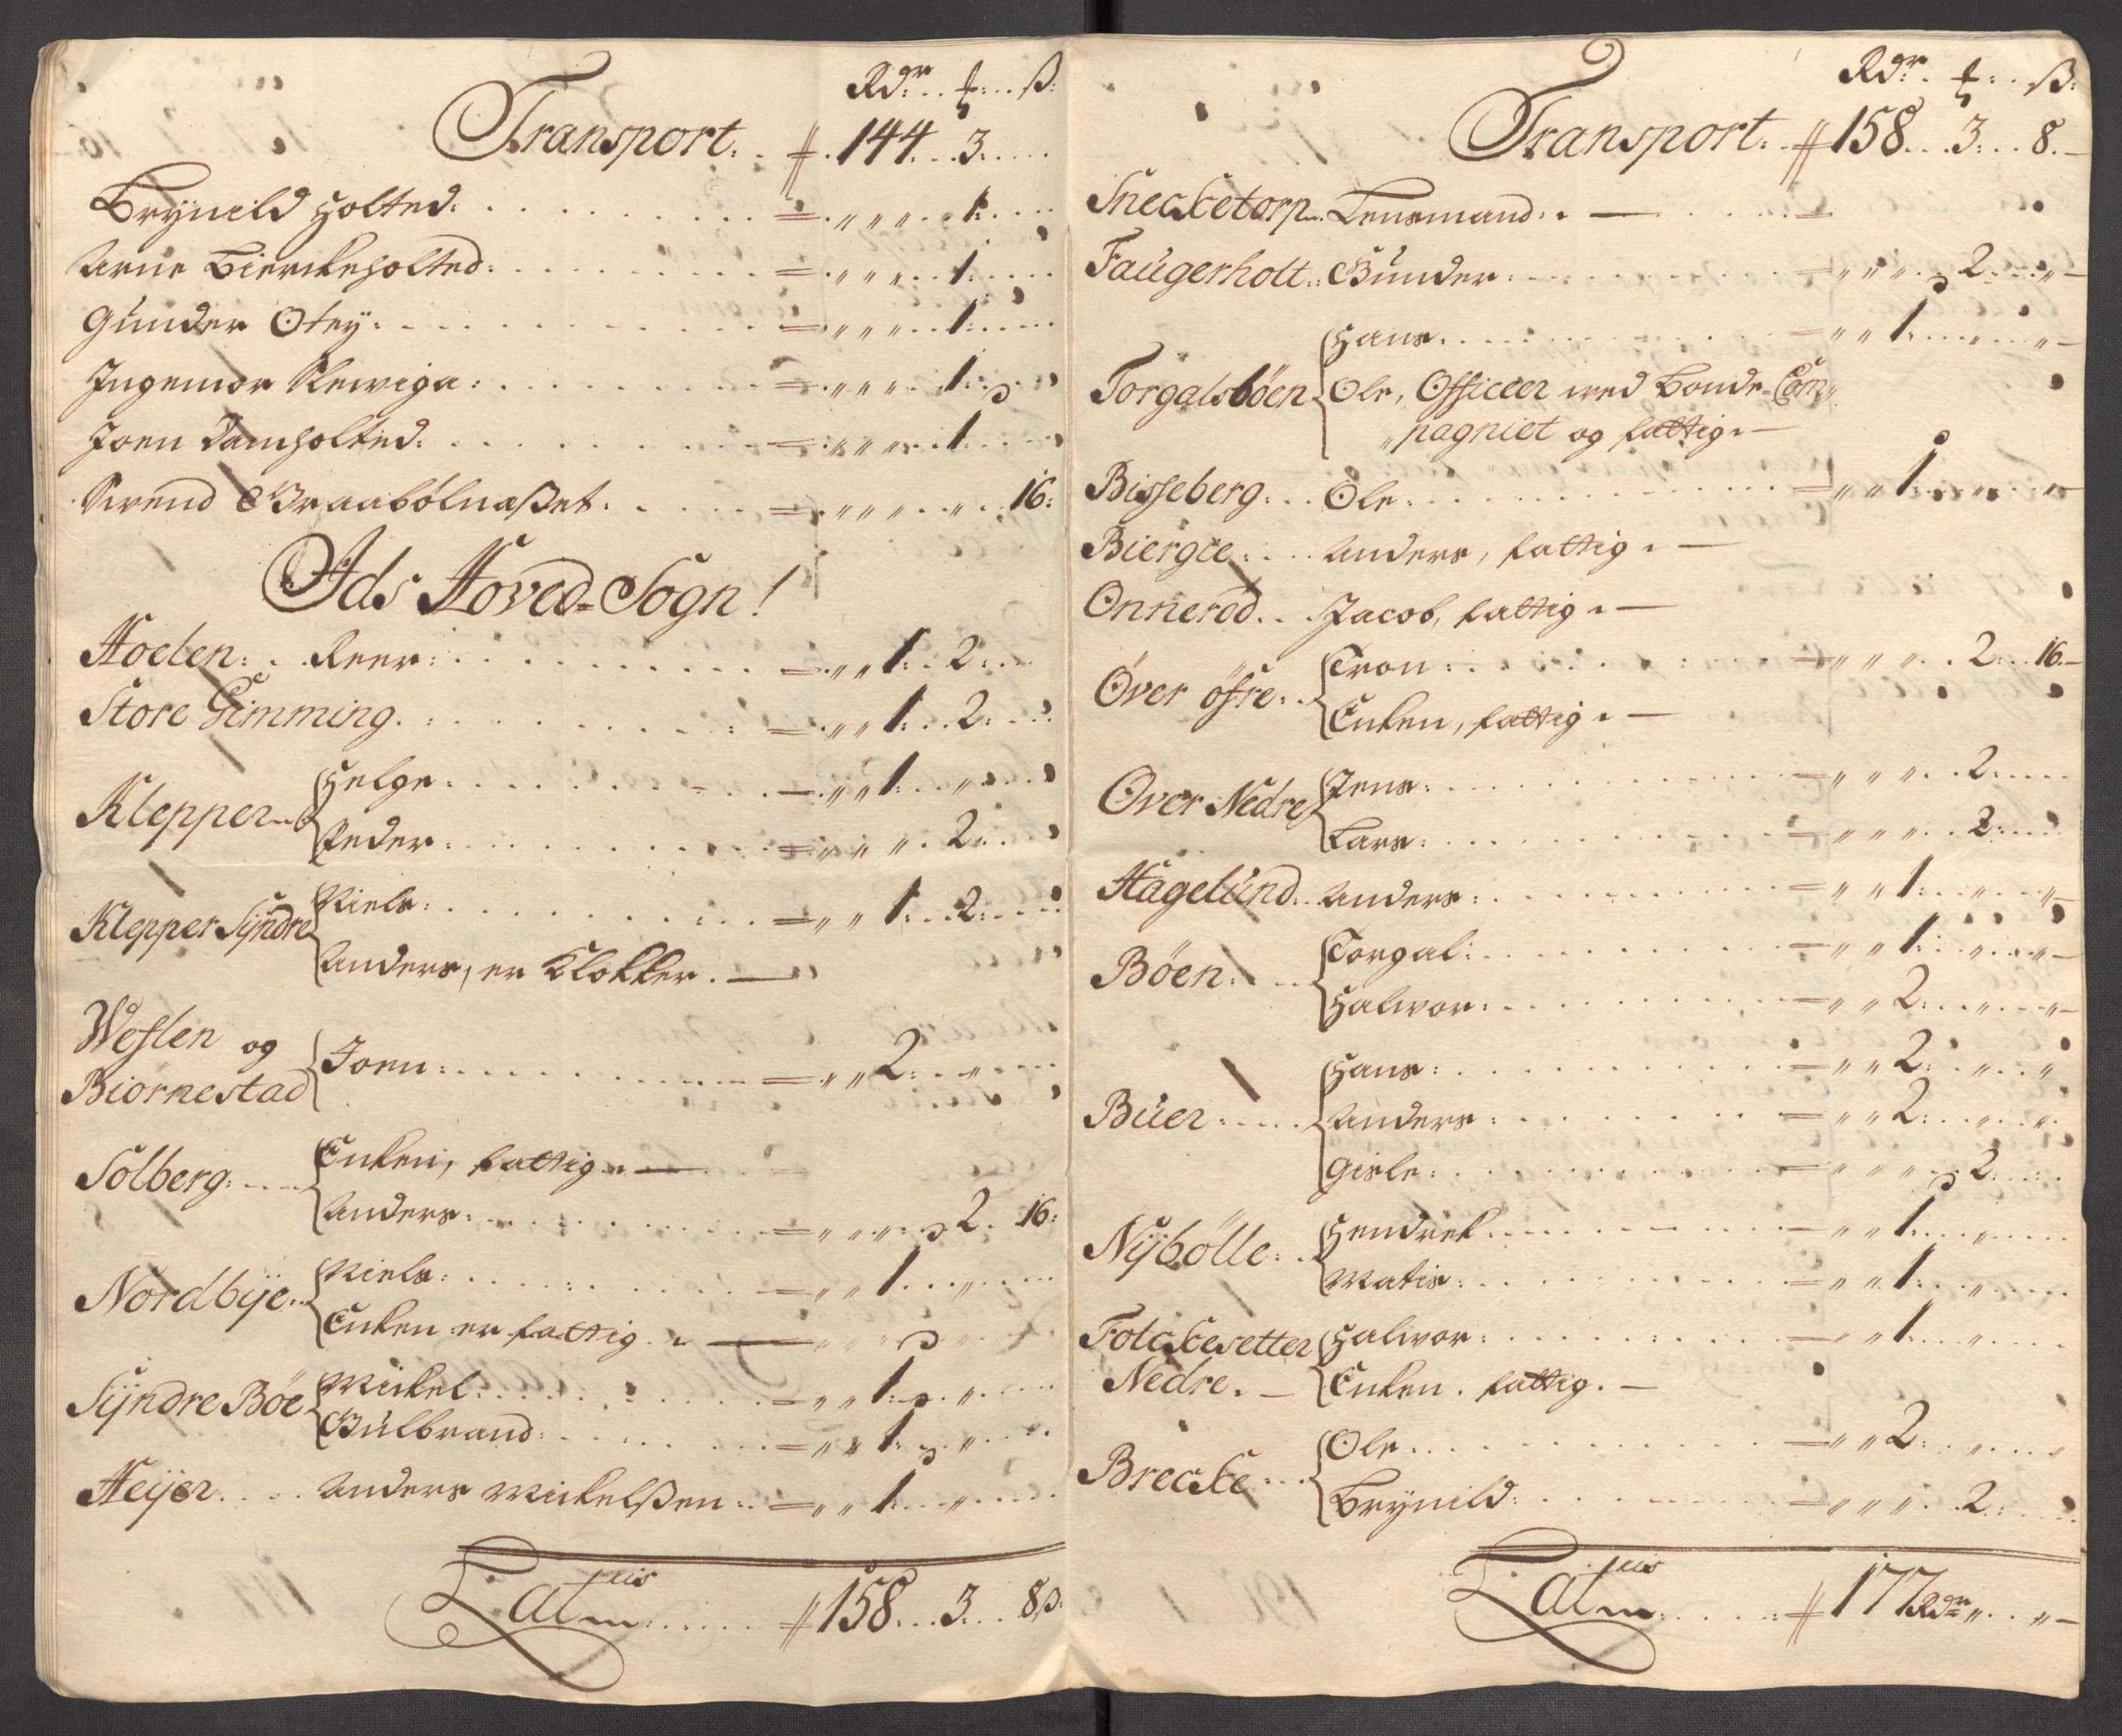 Rdr. ʄ: ß:
Transport. 144. 3.
Brynild Holted: " " " 1.
Arne Bierckeholted: " " " 1.
Gunder Otey: " " " 1.
Ingemor Kleiviga: " " " 1.
Joen Damholted: " " " 1.
Svend Graabølnaßet. " " " " 16:
Ids Hoved-Sogn!
Hoelen: Reer: " " 1. 2.
Store Gimming. " " 1. 2.
Klepper Helge: " " 1. "
Peder: " " " 2.
Klepper Syndre Niels: " " 1. 2.
Anders, er Klokker. —
Weslen og
Biörnestad Joen: " " 2. "
Solberg: Enken, fattig. —
Anders: " " " 2. 16:
Nordbÿe Niels: " " 1. "
Enken er fattig. —
Sÿndre Böe Mickel: " " 1. "
Gulbrand: " " 1. "
Heÿer. Anders Mickelßen: " " 1. "
Latus 158. 3. 8ß:
Rdr. ʄ: ß:
Transport. 158. 3. 8.
Snecketorp. Lensmand. —
Faugerholt. Gunder: " " " 2. "
Hans. " " 1. " "
Torgalsböen Ole, Officeer ved Bonde-Com"
"pagniet og fattig. —
Bisseberg. Ole. " " 1. " "
Biergee. Anders, fattig. —
Onneröd. Jacob, fattig. —
Över öfre. Tron: " " " 2. 16.
Enken, fattig. —
Över Nedre Jens: " " " 2.
Lars: " " " 2.
Hagelund. Anders: " " 1. " "
Böen. Torgal: " " 1. " "
Halvor: " " 2. " "
Buer. Hans: " " 2. " "
Anders: " " 2. " "
Gisle: " " " 2.
Nÿbölle. Hendrek. " " 1. "
Matis: " " 1. "
Folckesetter Halvor: " " 1. "
Nedre. — Enken. fattig. —
Brecke. Ole. " " 2. "
Brynild: " " " 2.
Latus 177 Rdr " "